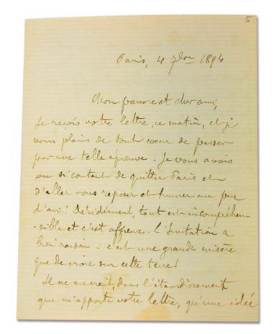 Paris, 4 7bre 1894
Mon pauvre et cher ami,
Je reçois votre lettre, ce matin, et je
vous plains de tout cœur de passer
par une telle épreuve. Je vous avais
vu si content de quitter Paris et
d'aller vous reposer et humer un peu
d'air! Décidément, tout est incompréhen-
sible et c'est affreux. L'Imitation a
bien raison: c'est une grande misère
que de vivre sur cette terre!
Il ne me vient, dans l'étourdissement
que m'apporte votre lettre, qu'une idée